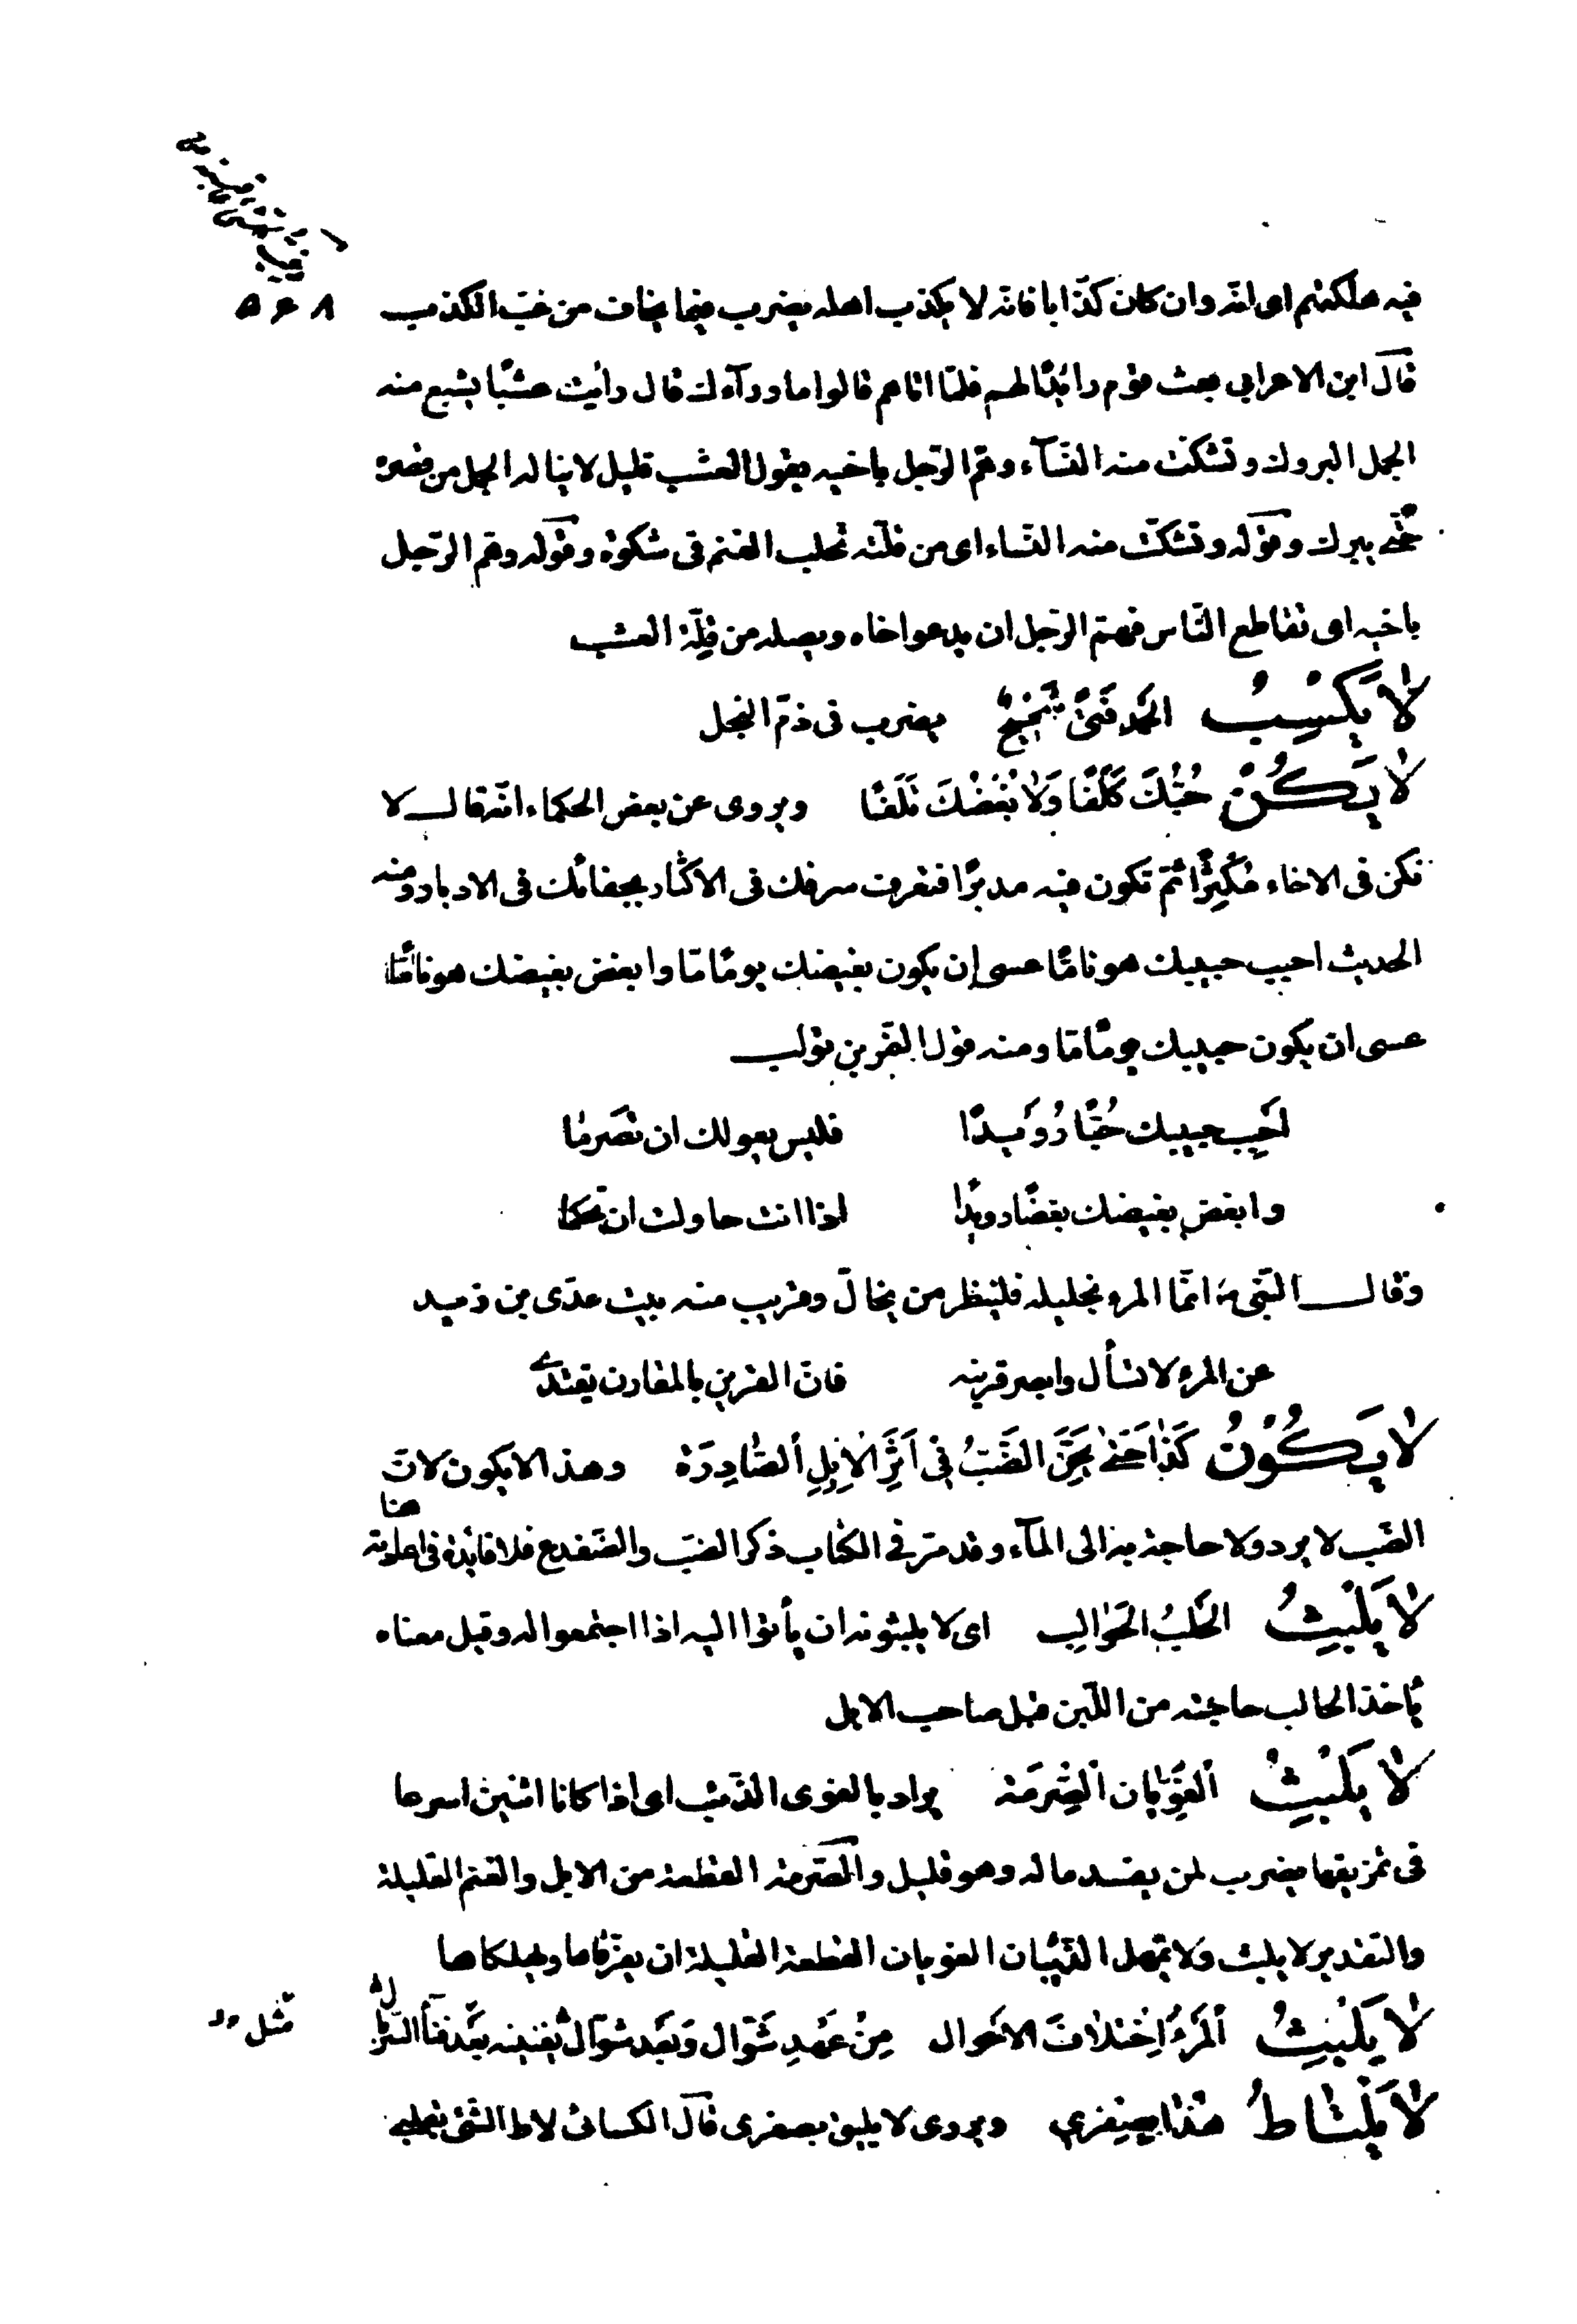 فيه هلكتهم اى انه وان كان كذابا فانه لا يكذب اهله يضرب فيما يخاف من غب الكذب
قال ابن الاعرابى بعث قوم رائدا لهم فلما اتاهم قالوا ما وراءك قال رأيت عشبا يشبع منه
الجمل البروك وتشكت منه النساء وهم الرجل باخيه يقول العشب قليل لا يناله الجمل من قصره
حتى يبرك وقوله وتشكت منه النساء اى من قلته تحلب الغنم فى شكوة وقوله وهم الرجل
باخيه اى تقاطع الناس فهم الرجل ان يدعو اخاه ويصله من قلة العشب
لا يَكْسِبُ الحمد فتى شحيح يضرب فى ذم البخل
لا يَكُنْ حُبُّكَ كَلَفًا وَلا بُغْضُكَ تَلَفًا ويروى عن بعض الحكماء انه قال لا
تكن فى الاخاء مكثرا ثم تكون فيه مدبرا فتعرف سرفك فى الاكثار بجفائك فى الادبار ومنه
الحديث احبب حبيبك هونا ما عسى إن يكون بغيضك يوما ما وابغض بغيضك هونا ما
عسى ان يكون حبيبك يوما ما ومنه قول النمر بن تولب
احبب حبيبك حُبًّا رُوَيدًا فليس يعولك ان تصرما
وابغض بغيضك بغضا رويدا اذا انت حاولت ان تحكما
وقال النبى ص انما المرء بخليله فلينظر من يخال وقريب منه بيت عدى بن زيد
عن المرء لا تسأل وابصر قرينه فان القرين بالمقارن يقتدى
لا يَكُوْنُ كَذا حَتى يَحِنَّ الضَبُّ فى اَثَرِ الاِبِلِ الصّادِرَة وهذا لا يكون لان
الضب لا يرد ولا حاجة به الى الماء وقد مر فى الكتاب ذكر الضب والضفدع فلا فايدة فى اعادته هنا
لا يَلْبِثُ الحَلبُ الحَوالِب اى لا يلبثونه ان يأتوا اليه اذا اجتمعوا له وقيل معناه
يأخذ الحالب حاجته من اللبن قبل صاحب الابل
لا يَلْبِثُ الغَوِيّان الصِّرمَة يراد بالغوى الذئب اى اذا كانا اثنين اسرعا
فى تمزيقها يضرب لمن يفسد ماله وهو قليل والصرمة القطعة من الابل والغنم القليلة
والتقدير لا يلبث ولا يمهل الذئبان الغويان القطعة القليلة ان يفرقاها ويهلكاها
لا يَلْبَثِ المَرْءُ اِخْتِلافَ الاحوال مِنْ عَهْدِ شَوّال وَبَعْد شوال يفنينه
لا يَلْتاطُ هذا بصِفَري ويروى لا يليق بصفرى قال الكسائى لاط الشئ بقلبى